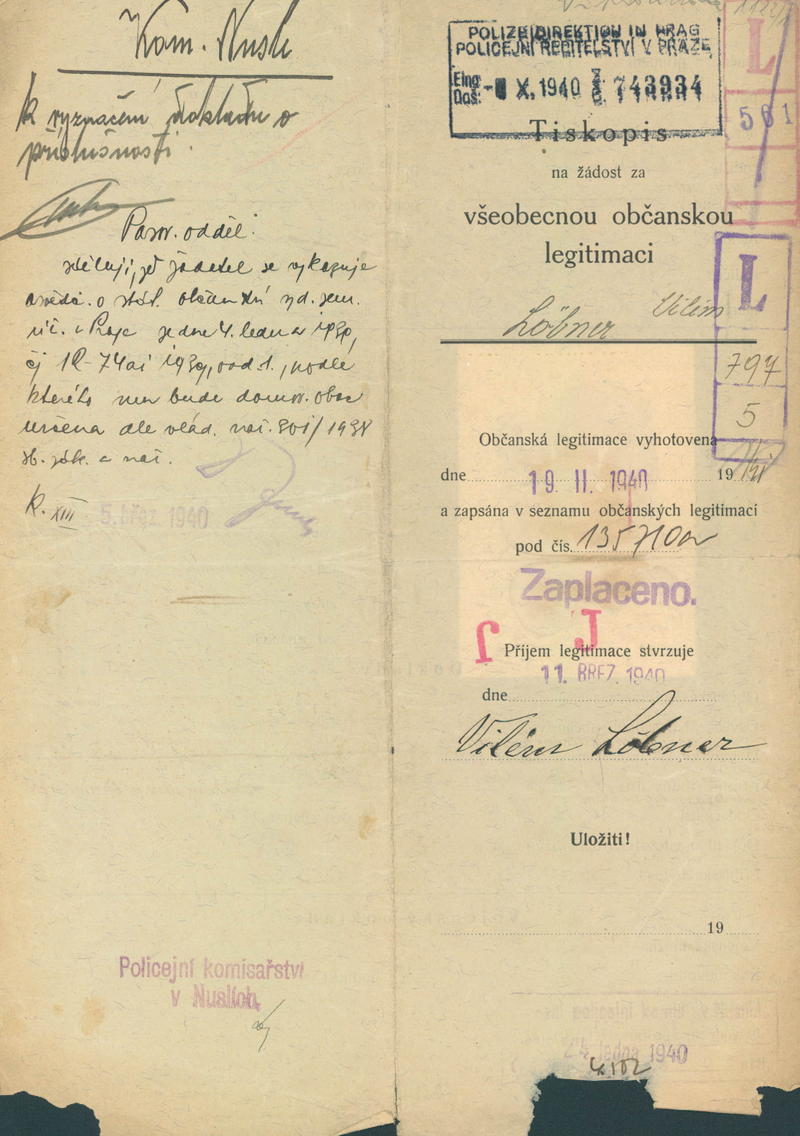 Kom. Nusle
k vyznačení dokladu o
příslušnosti.
Pasov. odděl.
sděluji, že žadatel se vykazuje
osvědč. o stát. občanství vyd. zem.
úř. v Praze ze dne 4. ledna 1939,
čj 1R-74 1939, odd. 1., podle
kterého mu bude domov. obec
určena dle vlád. nař. 301/1938
sb. zák. a nař.
K. XIII
5. břez. 1940
Policejní komisařství
v Nuslích
POLIZEIDIREKTION IN PRAG
POLICEJNÍ ŘEDITELSTVÍ V PRAZE
Eing.
Doš. X. 1940 743934
L
561
Tiskopis
na žádost za
všeobecnou občanskou
legitimaci
Löbner Vilém
L
797
5
Občanská legitimace vyhotovena
dne 19 II. 1940 19
a zapsána v seznamu občanských legitimací
pod čís. 135710
Zaplaceno.
J
Příjem legitimace stvrzuje
11. BŘEZ. 1940
dne
Vilém Löbner
Uložiti!
19
24. ledna 1940